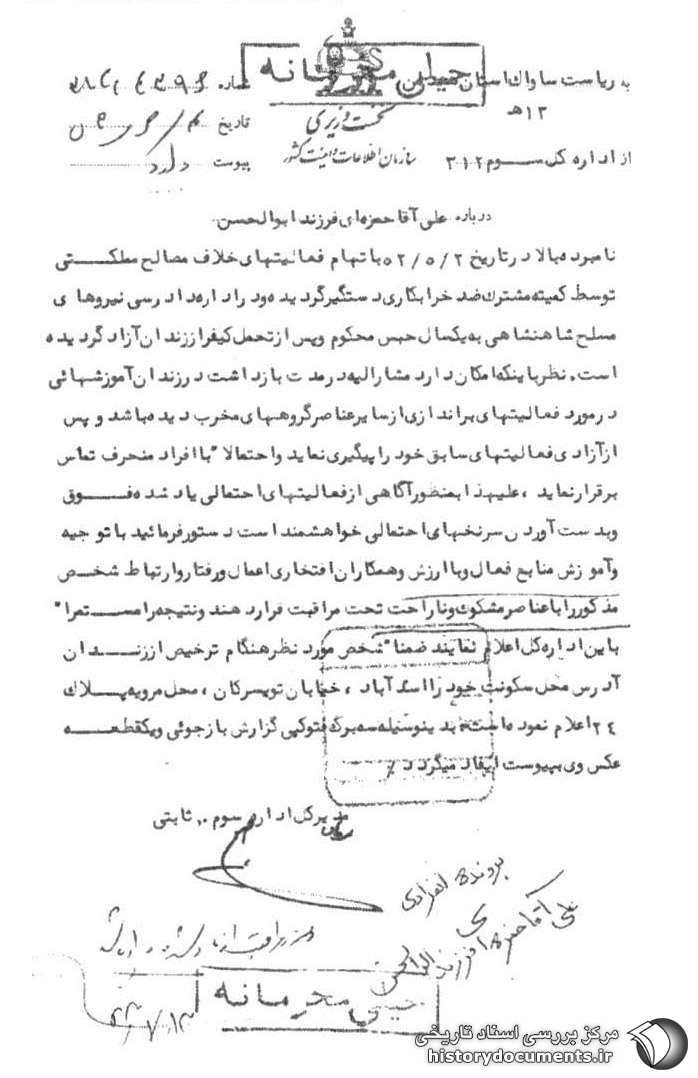 خیلی محرمانه
به ریاست ساواک استان همدان
۱۳ هـ
از اداره کل سوم ۳۱۲
نخست وزیری
سازمان اطلاعات و امنیت کشور
شماره
تاریخ
پیوست دارد
درباره علی آقا حمزه ای فرزند ابوالحسن
نامبرده بالا در تاریخ ۵۲/۵/۲ باتهام فعالیتهای خلاف مصالح مملکتی
توسط کمیته مشترک ضد خرابکاری دستگیر گردیده و در اداره دادرسی نیروهای
مسلح شاهنشاهی به یکسال حبس محکوم و پس از تحمل کیفر از زندان آزاد گردیده
است. نظر باینکه امکان دارد مشارالیه در مدت بازداشت در زندان آموزشهائی
در مورد فعالیتهای براندازی از سایر عناصر گروههای مخرب دیده باشد و پس
از آزادی فعالیتهای سابق خود را پیگیری نماید و احتمالا" با افراد منحرف تماس
برقرار نماید ، علیهذا بمنظور آگاهی از فعالیتهای احتمالی یاد شده فوق
و بدست آوردن سرنخهای احتمالی خواهشمند است دستور فرمائید با توجیه
و آموزش منابع فعال و با ارزش و همکاران افتخاری اعمال و رفتار و ارتباط شخص
مذکور را با عناصر مشکوک و ناراحت تحت مراقبت قرار دهند و نتیجه را مستمرا"
باین اداره کل اعلام نمایند ضمنا" شخص مورد نظر هنگام ترخیص از زندان
آدرس محل سکونت خود را اسدآباد ، خیابان تویسرکان ، محل مرویه پلاک
۲۴ اعلام نموده است بدینوسیله سه برگ فتوکپی گزارش بازجوئی و یکقطعه
عکس وی بپیوست ایفاد میگردد /
مدیر کل اداره سوم . ثابتی
پرونده انفرادی
علی آقا حمزه ای فرزند ابوالحسن
خیلی محرمانه
مرکز بررسی اسناد تاریخی
historydocuments.ir